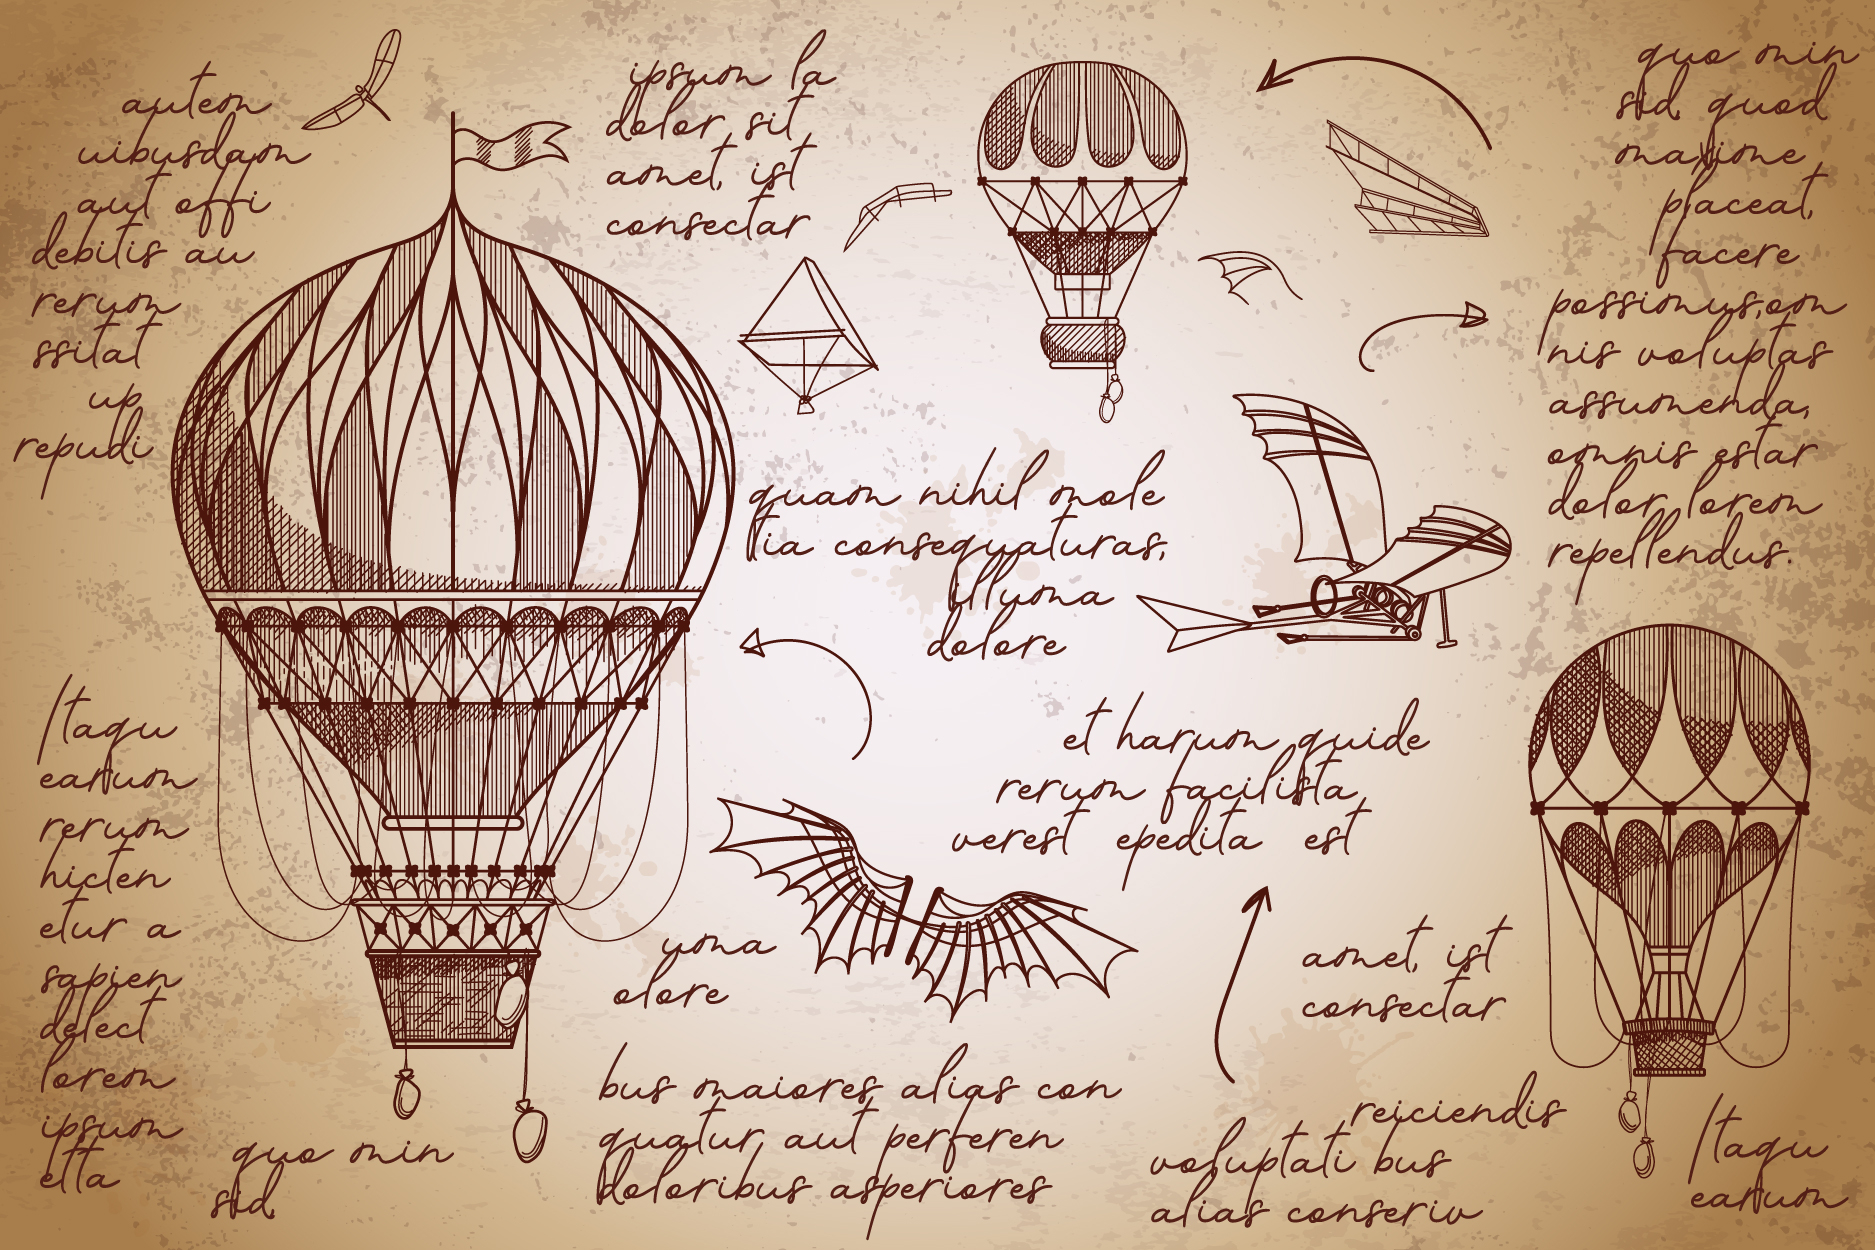 autem
uibusdam
aut offi
debitis au
rerum
ssitat
up
repudi
ipsum la
dolor sit
amet, ist
consectar
quo min
sid, quod
maxime
placeat,
facere
possimus,om
nis voluptas
assumenda,
omnis estar
dolor lorem
repellendus.
quam nihil mole
tia consequaturas,
illuma
dolore
et harum quide
rerum facilista
verest epedita est
Itaqu
earum
rerum
hicten
etur a
sapien
delect
lorem
ipsum
etta
quo min
sid,
uma
olore
bus maiores alias con
quatur aut perferen
doloribus asperiores
amet, ist
consectar
reiciendis
voluptati bus
alias conseriv
Itaqu
earum